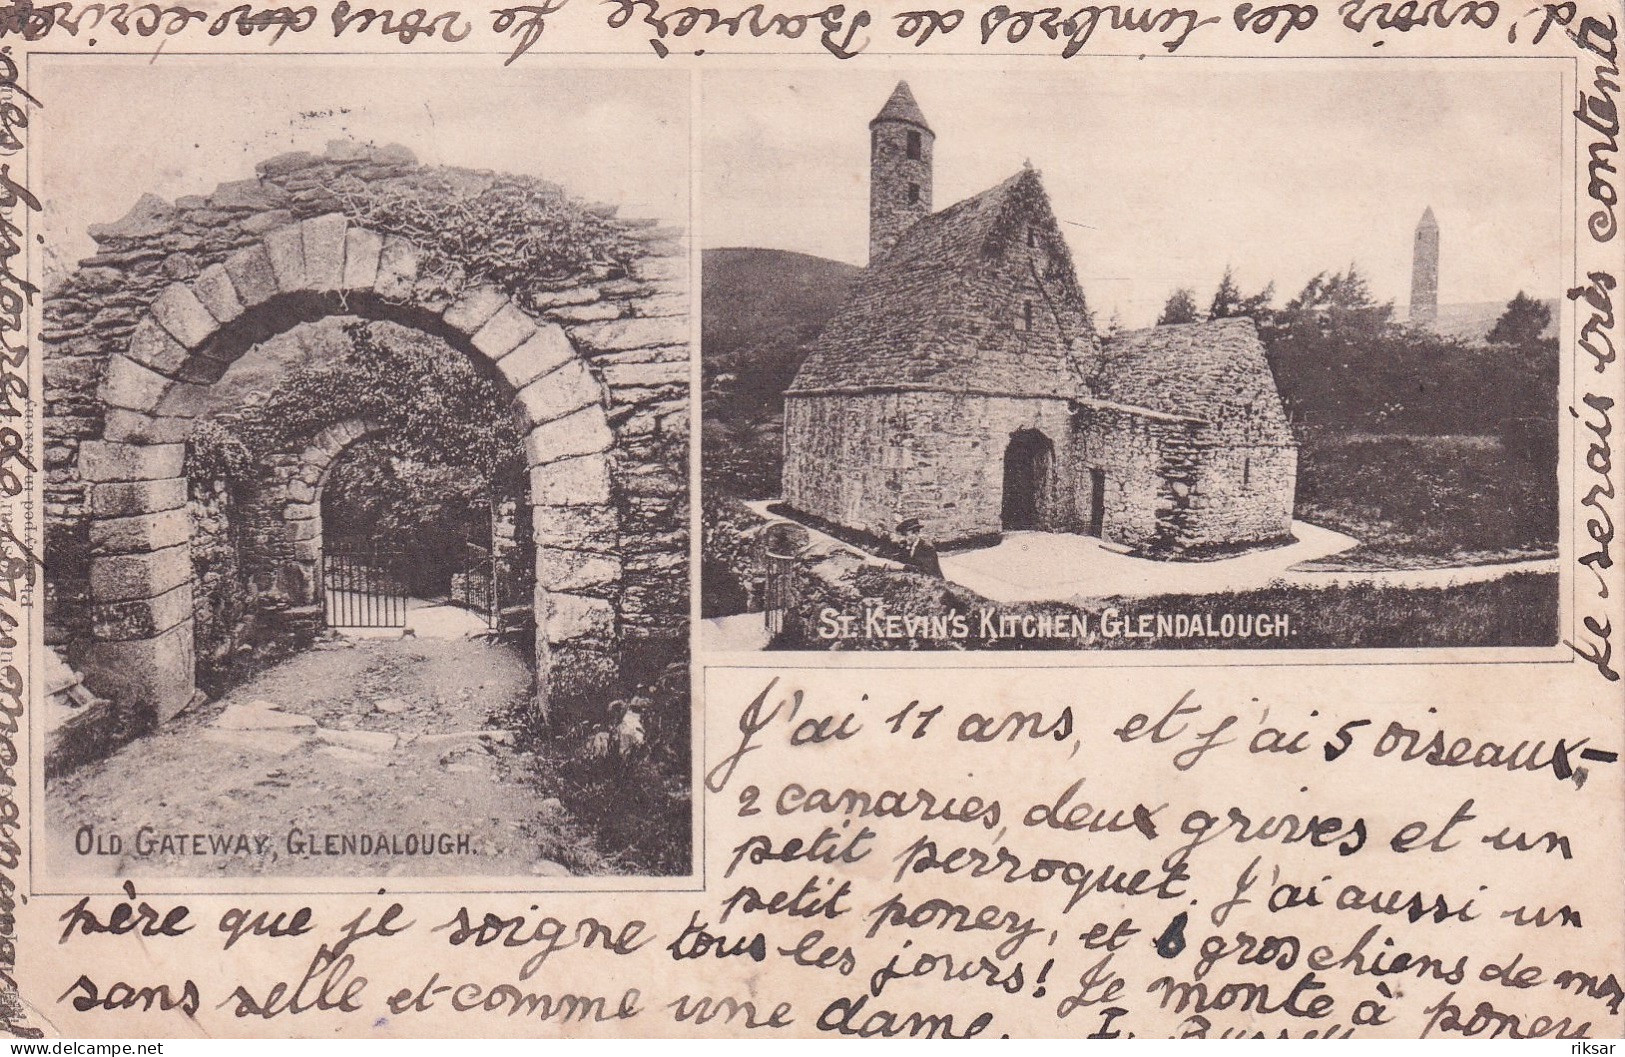 d'avoir des timbres de Bavière Je vous écrire
des histoires
Je serais très contente
OLD GATEWAY, GLENDALOUGH.
ST. KEVIN'S KITCHEN, GLENDALOUGH.
J'ai 11 ans, et j'ai 5 oiseaux,-
2 canaries, deux grives et un
petit perroquet. J'ai aussi un
petit poney, et 6 gros chiens de mon
père que je soigne tous les jours! Je monte à poney
sans selle et comme une dame. I.
riksar